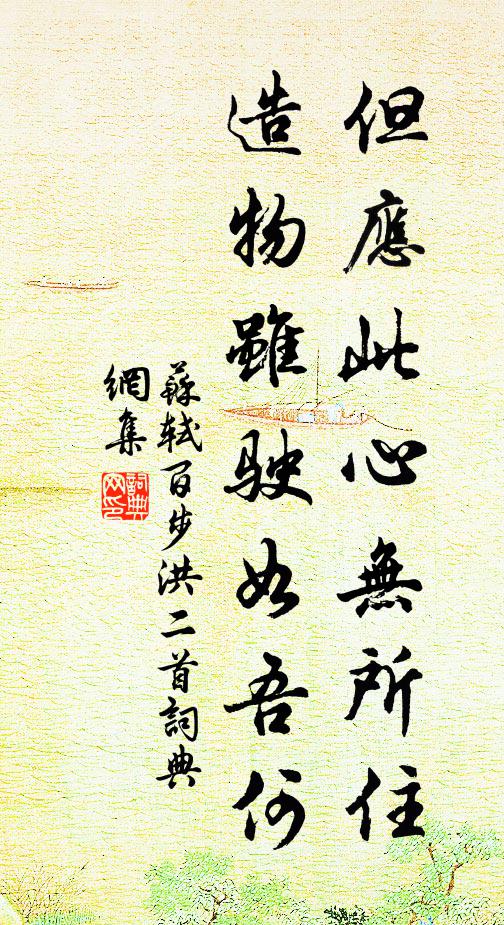 但應此心無所住
造物雖駛如吾何
蘇軾百步洪二首詞典
網集
詞典
网印